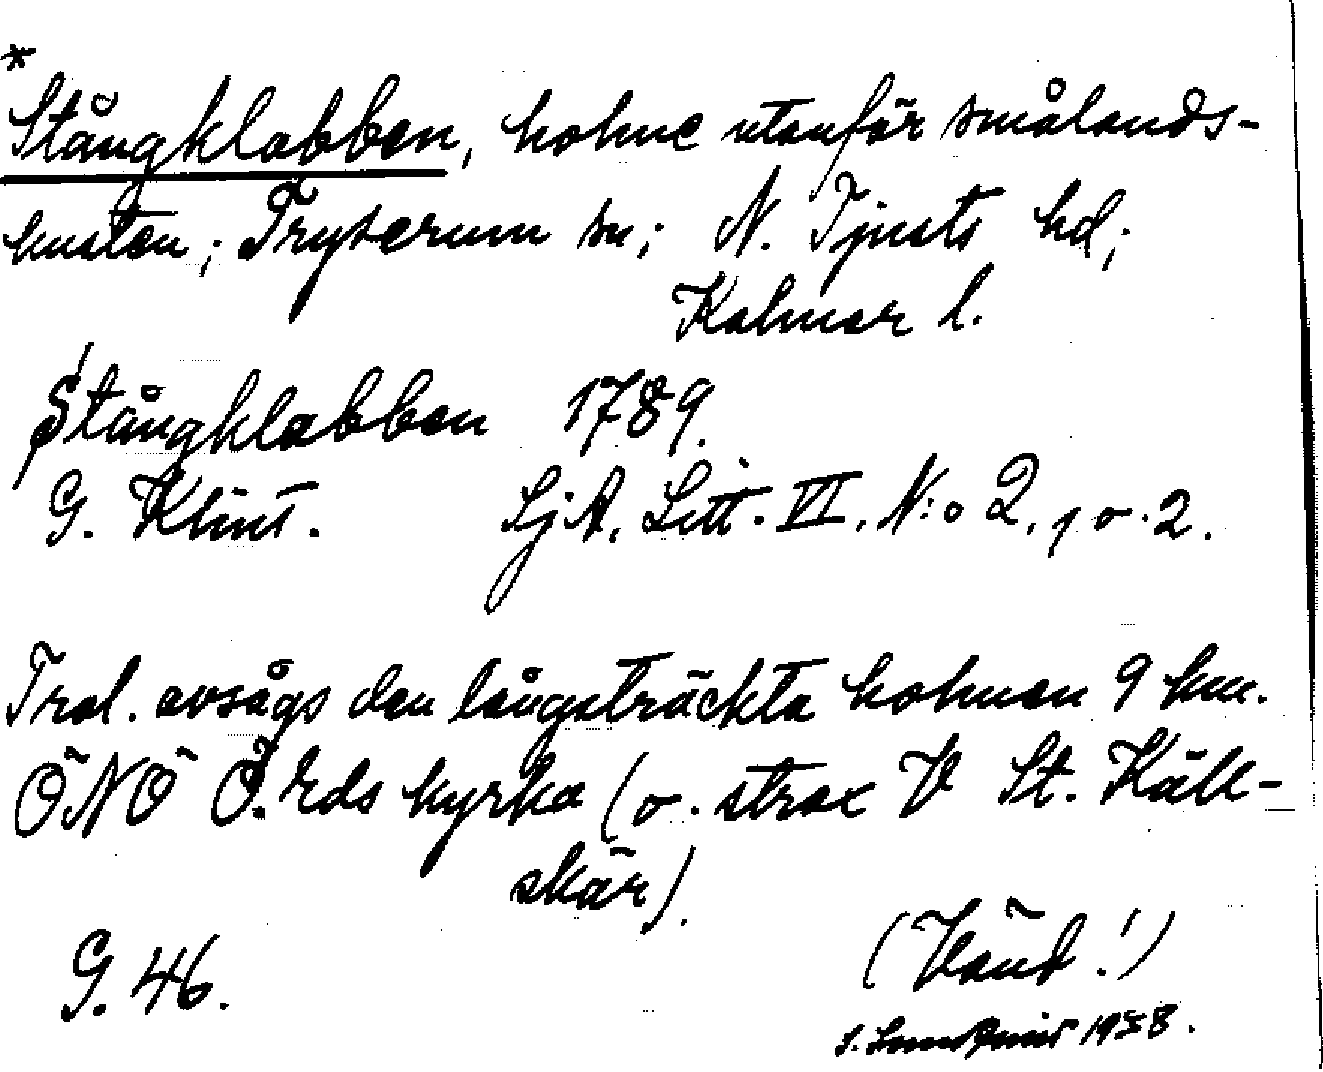 *
Stångklabben, holme utanför smålands-
kusten; Tryserum sn; N. Tjusts hd;
Kalmar l.
Stångklabben 1789.
G. Klint. SjA, Litt. VI, N:o 2, 1 o. 2.
Trol. avsågs den långsträckta holmen 9 km.
ÖNÖ Ö. Eds kyrka (o. strax V St. Käll-
skär).
(Vänd!)
G. 46.
1958.